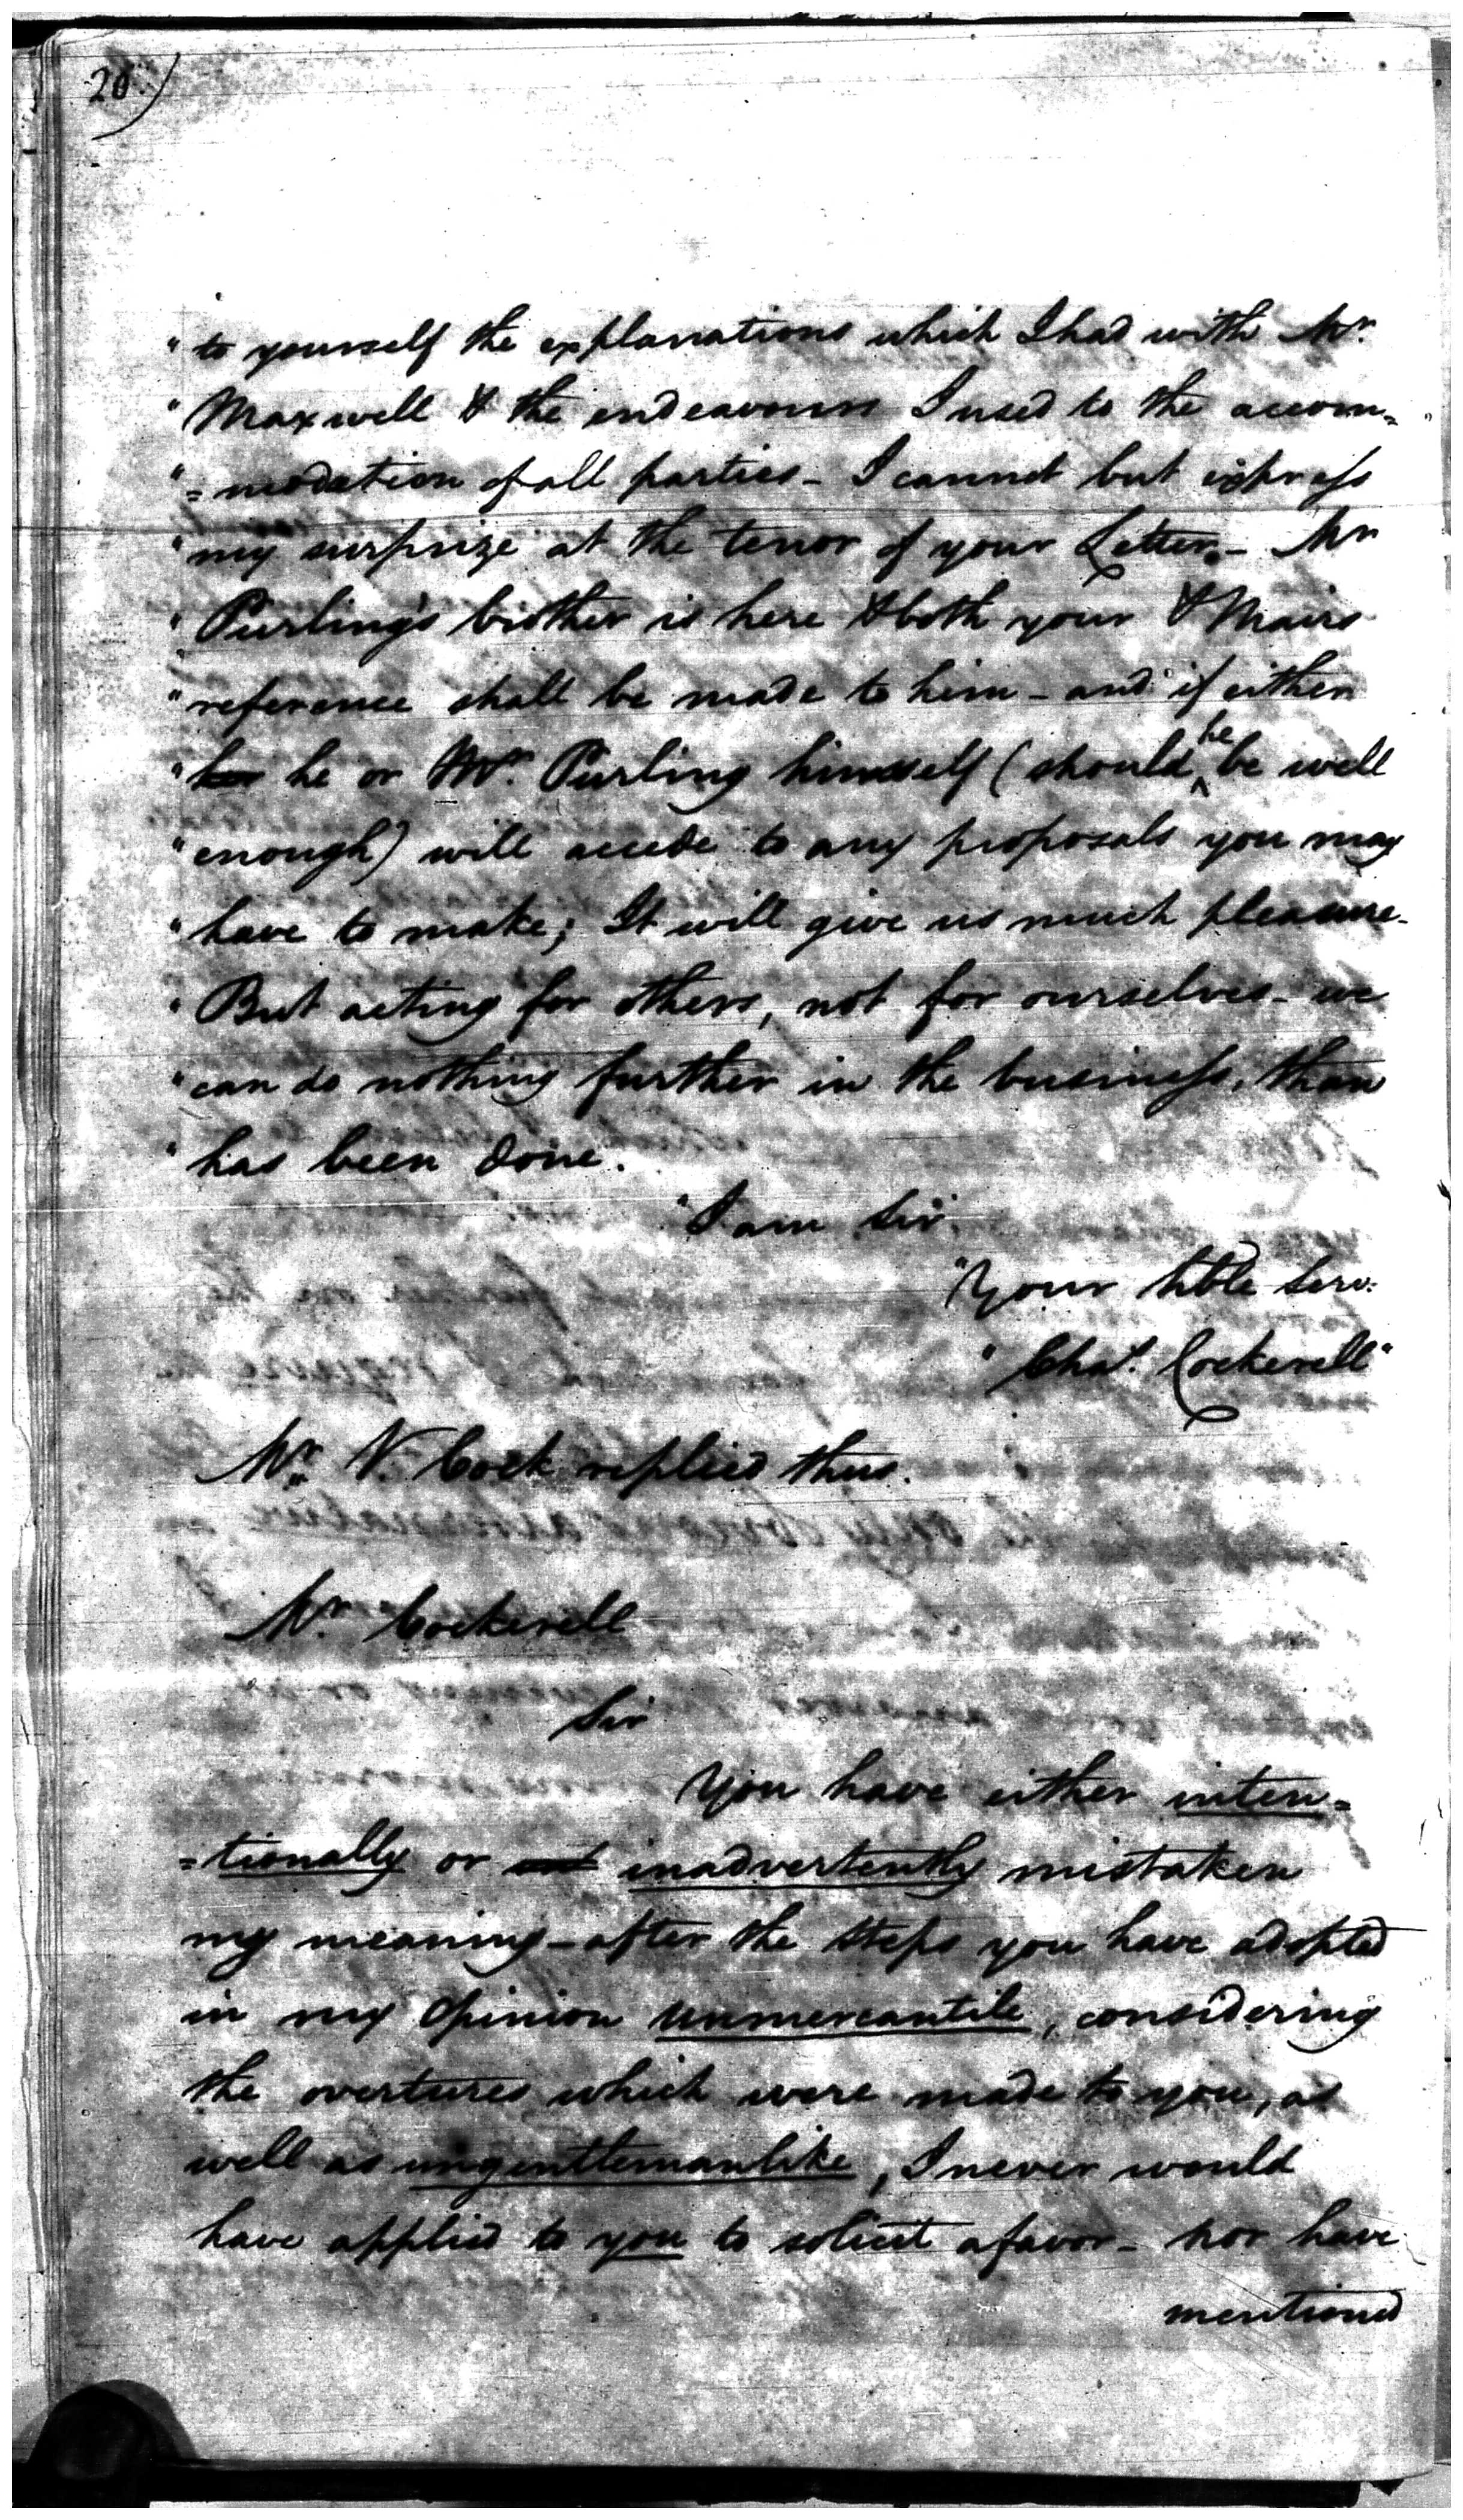 20)
" to yourself the explanations which I had with Mr.
" Maxwell & the endeavours I used to the accom=
" =modation of all parties - I cannot but express
" my surprize at the tenor of your Letter. - Mr
" Purling's brother is here & both your & Mairs
" reference shall be made to him - and if either
" he or Mr. Purling himself (should he be well
" enough) will accede to any proposals you may
" have to make; It will give us much pleasure -
" But acting for others, not for ourselves - we
" can do nothing further in the business, than
" has been done.
" I am Sir
" Your hble Serv.
" Chas. Cockerell "
Mr. V. Cock replied thus.
Mr. Cockerell
Sir
You have either inten=
=tionally or inadvertently mistaken
my meaning - after the steps you have adopted
in my Opinion unmercantile, considering
the overtures which were made to you, as
well as ungentlemanlike, I never would
have applied to you to solicit a favor - nor have
mentioned